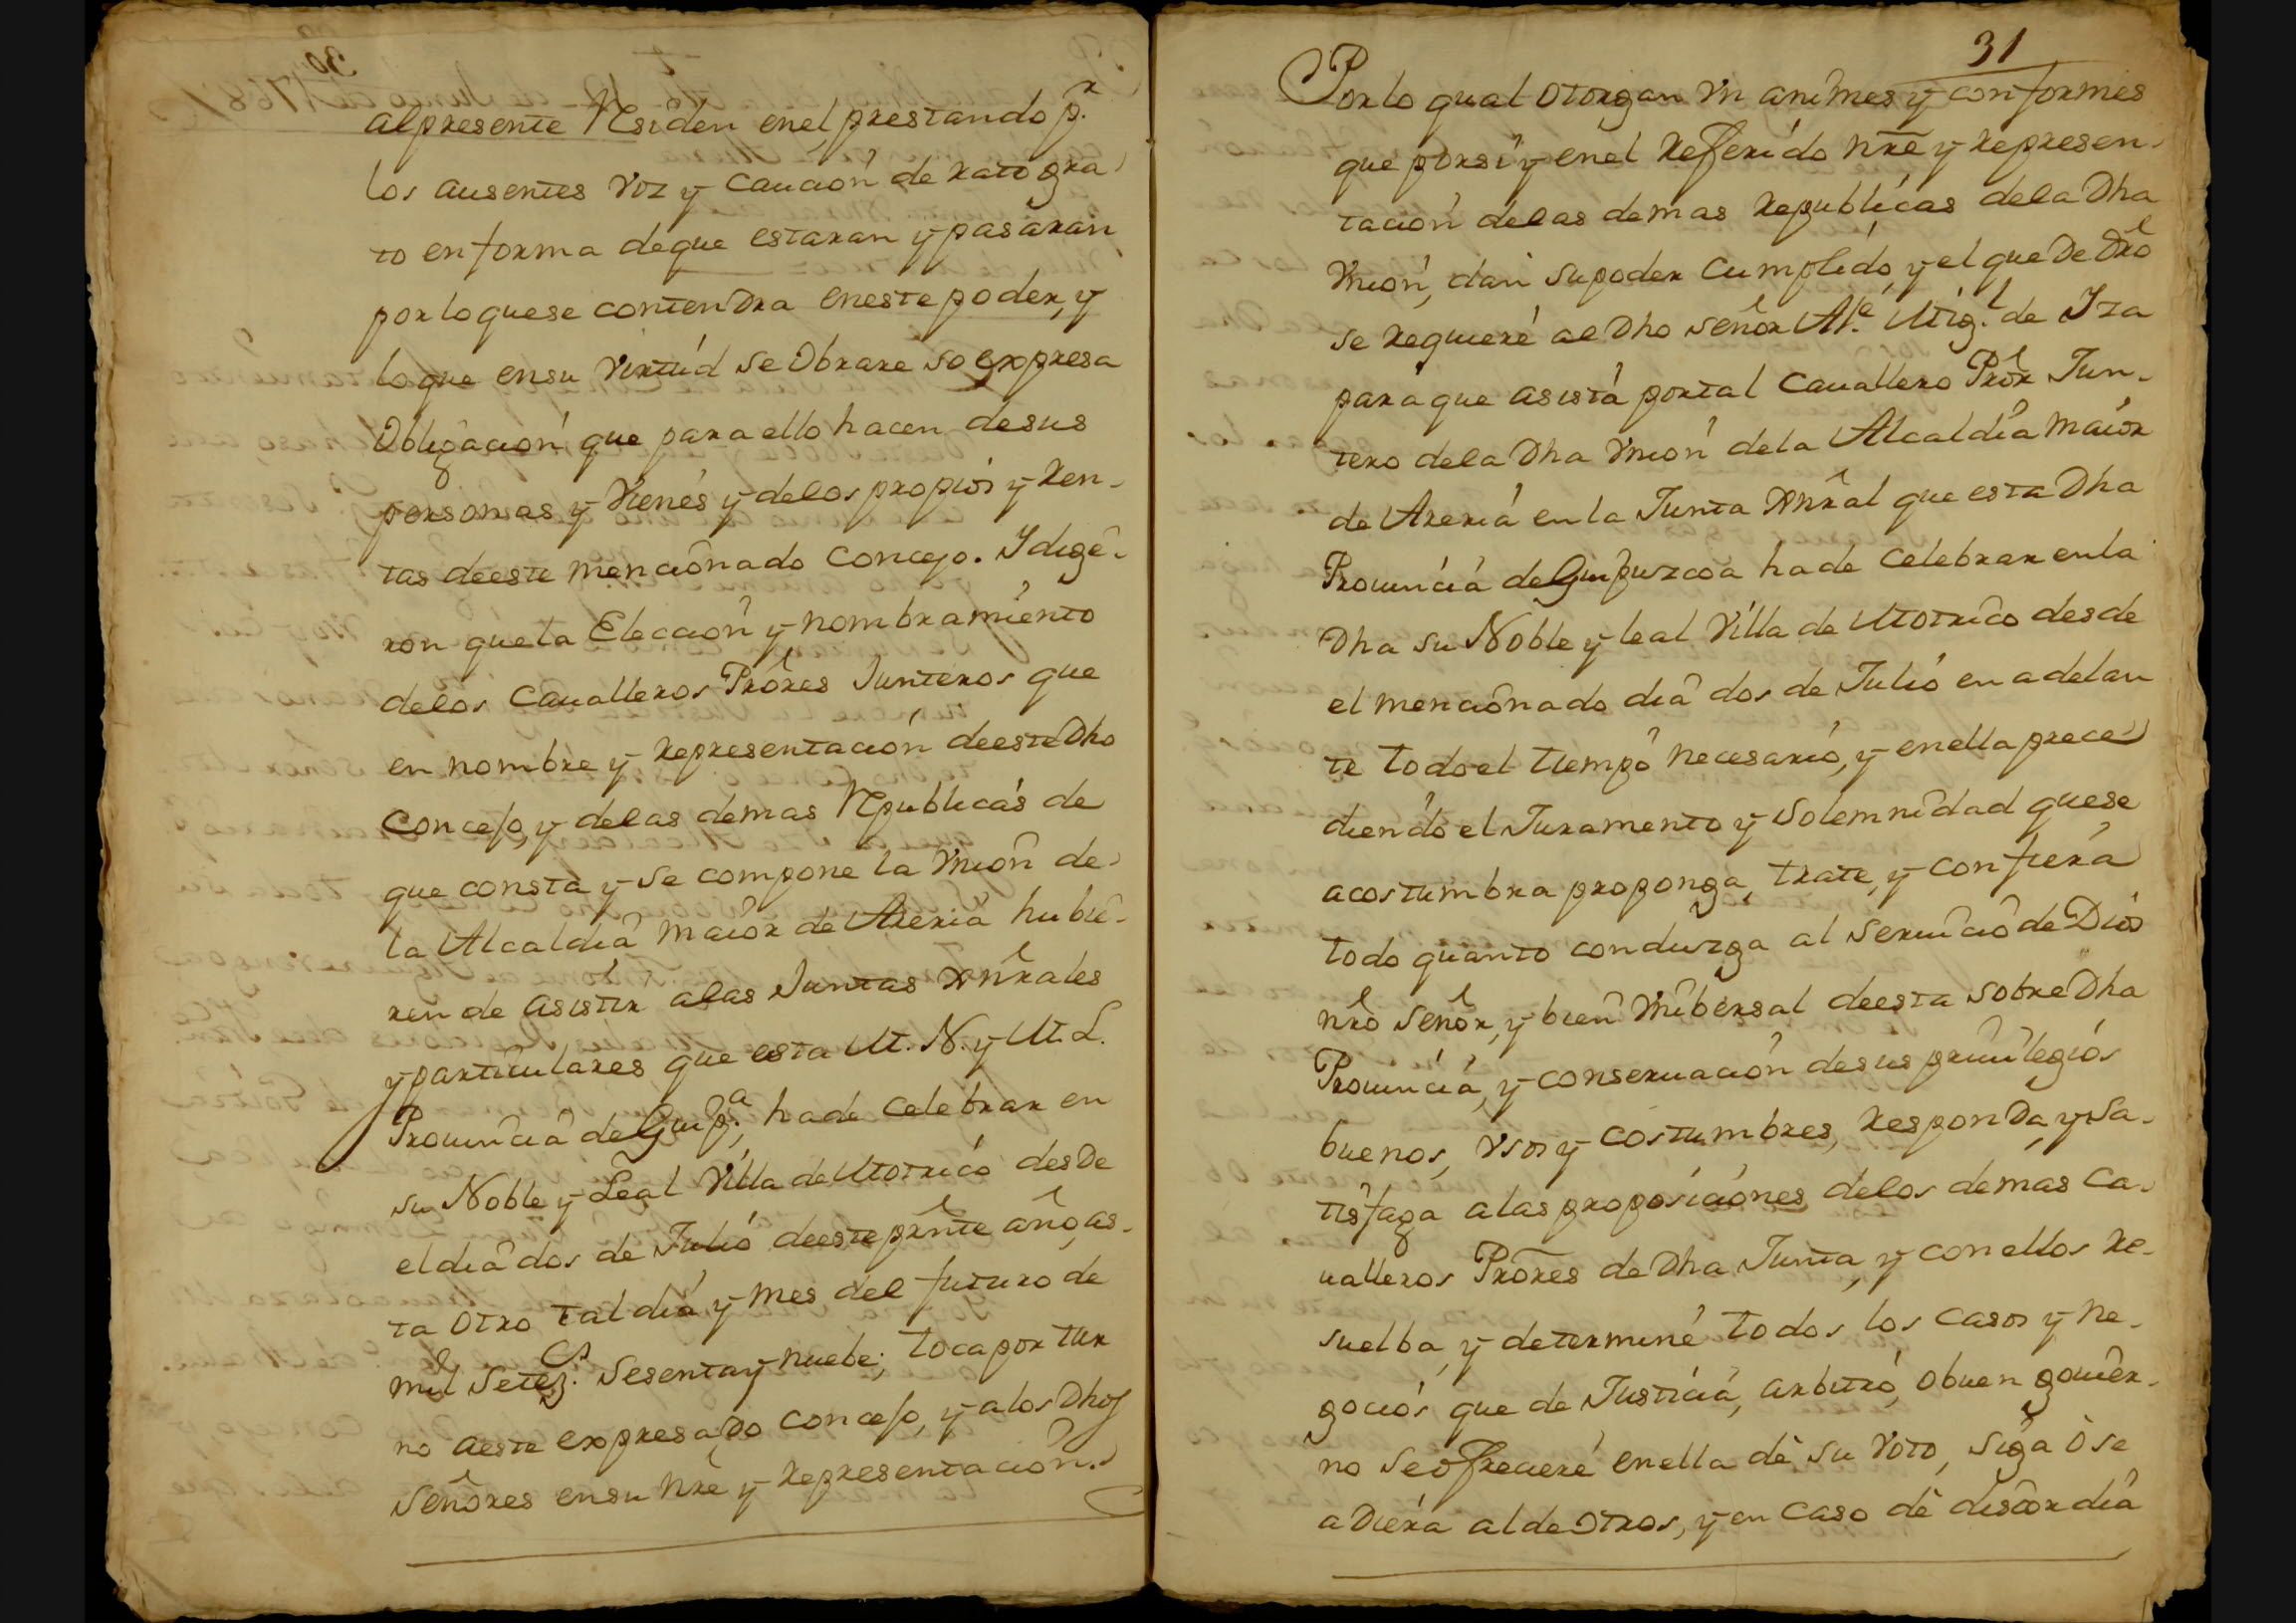 al presente Residen enel prestando p.r
los ausentes voz y Caución de rato gra
to en forma deque estaran y pasaran
por loquese contendra eneste poder, y
loque ensu virtud se obrare so expresa
obligación que para ello hacen desus
personas y vienes y delos propios y Ren-
tas deeste mencionado Concejo. Y dige-
ron quela Elección y nombramiento
delos Caualleros Prores Junteros que
en nombre y Representación deeste Dho
Concejo, y delas demas Republicas de
que consta y se compone la Vnion de
la Alcaldia maior de Areria hubie-
ren de asistir alas Juntas Gnrales
y particulares que esta M. N. y M. L.
Prouincia de Guip.a, hade Celebrar en
su Noble y Leal Villa de Motrico desde
el dia dos de Julio deeste prnte año, as-
ta otro tal dia y mes del futuro de
mil Setez.s Sesenta y nuebe; toca por tur
no aeste expresado Concejo, y alos Dhos
Señores ensu Nre y Representación.
31
Por lo qual otorgan vn animes y conformes
que porsi y enel Referido Nre y Represen-
tacion delas demas Republicas dela Dha
Vnion, dan supoder Cumplido, y el que De Dro
se Requiere al Dho señor Al.e Mig.l de Yza
para que asista portal Cauallero Pror Jun-
tero dela Dha Vnion dela Alcaldia maior
de Areria en la Junta Gnral que esta Dha
Prouincia de Guipuzcoa hade Celebrar enla
Dha su Noble y leal Villa de Motrico desde
el mencionado dia dos de Julio en adelan
te todo el tiempo necesario, y enella prece
diendo el Juramento y Solemnidad quese
acostumbra proponga, trate, y confiera
todo quanto conduzga al seruicio de Dios
nro Señor, y bien Vnibersal deesta sobre Dha
Prouincia, y conseruación desus priuilegios
buenos, vsos y costumbres, Responda, y Sa-
tisfaga alas proposiciones delos demás Ca-
ualleros Prores de Dha Junta, y conellos Re-
suelba, y determine todos los Casos y ne-
gocios que de Justicia, arbitrio, obuen gouier-
no se ofreciere enella dè su voto, siga ò se
adiera alde otros, y en caso dè discordia